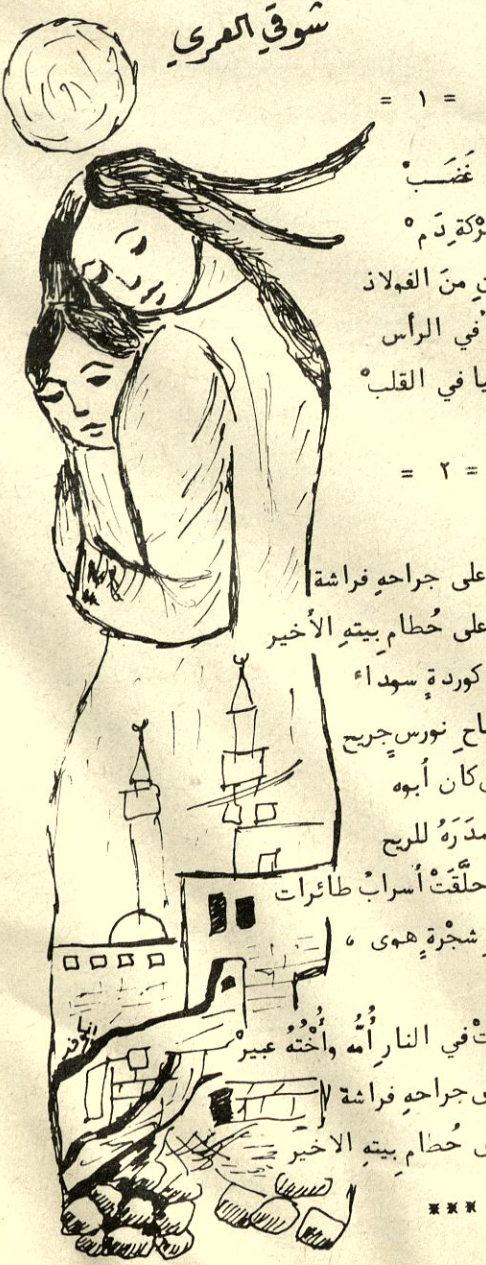 شوقي العمري
= ١ =
غَضَبْ
دَمْ
منَ الفولاذ
في الرأس
في القلبْ
= ٢ =
على جراحهِ فراشة
على حُطامِ بيتهِ الأخير
كوردةٍ سوداء
نورسٍ جريح
كان أبوه
للريح
حلَّقَتْ أسرابُ طائرات
شجْرةٍ هوى ،
في النارِ أُمُّه وأُخْتُهُ عبيرْ
جراحهِ فراشة
حُطامِ بيتهِ الاخير
***